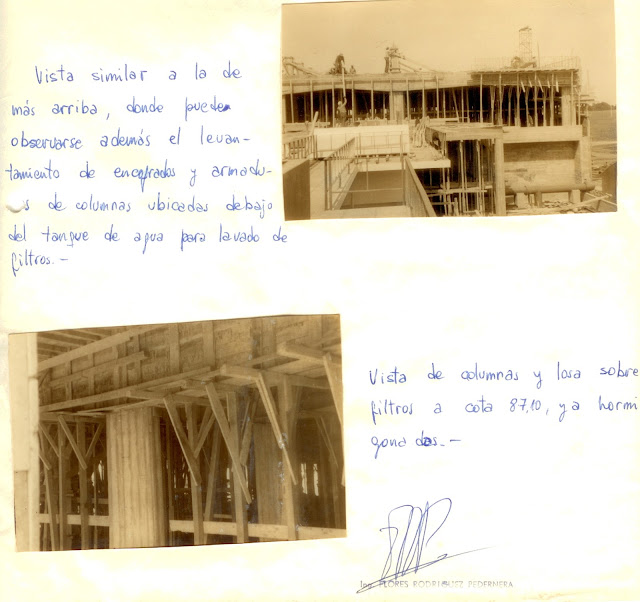 Vista similar a la de
más arriba, donde pueden
observarse además el levan-
tamiento de encofrados y armadu-
s de columnas ubicadas debajo
del tanque de agua para lavado de
filtros.-
Vista de columnas y losa sobre
filtros a cota 87,10, ya hormi
gonados.-
Ing. FLORES RODRIGUEZ PEDERNERA